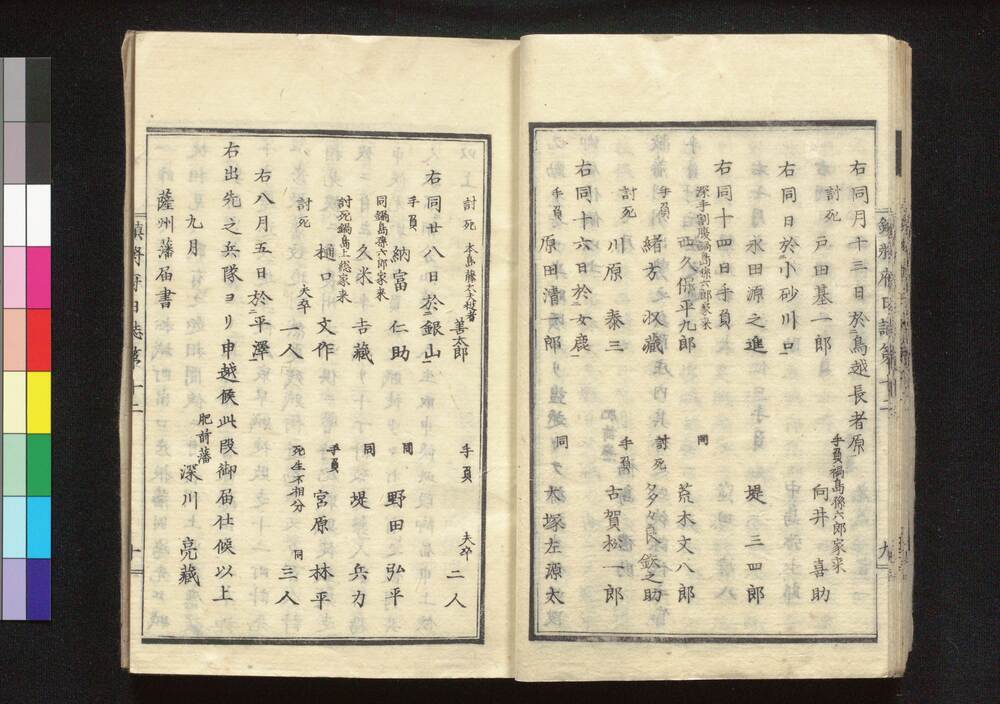 鎮将府日誌第十二
九
右同月十三日於鳥越長者原
討死 戸田基一郎
手負鍋島孫六郎家来 向井喜助
右同日於小砂川口
永田源之進
堤三四郎
右同十四日手負
深手割腹鍋島孫六郎家来 西久保平九郎
同 荒木文八郎
手負 緒方収蔵
討死 多々良鉄之助
討死 川原泰三
手負 古賀松一郎
右同十六日於女鹿
手負 原田清一郎
同 木塚左源太
討死 本島藤太夫従者 善太郎
手負 夫卒 二人
右同廿八日於銀山
手負 納富仁助
同 野田弘平
同鍋島孫六郎家来 久米吉藏
同 堤兵力
討死鍋島上総家来 樋口文作
手負 宮原林平
討死 夫卒 一人
死生不相分 同 三人
右八月五日於平澤
右出先之兵隊ヨリ申越候此段御届仕候以上
九月
肥前藩 深川亮藏
薩州藩届書
鎮将府日誌第十二
十